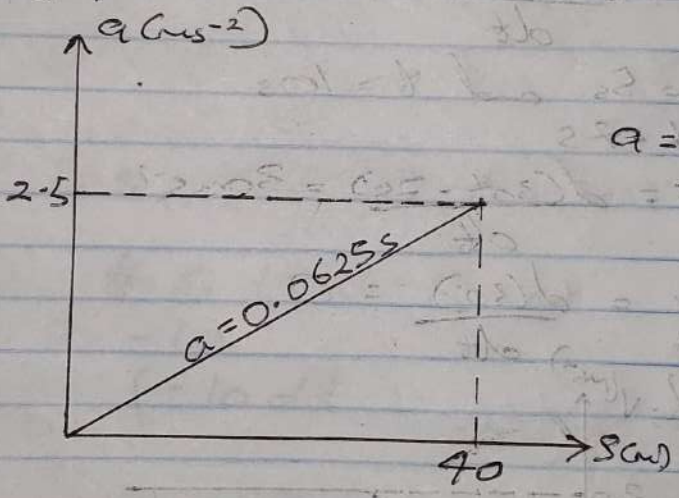 a (ms⁻²)
a =
2.5
a = 0.0625s
40
S(m)